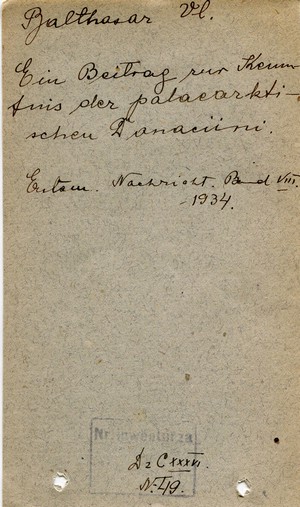 Balthasar Vl.
Ein Beitrag zur Kenn-
tnis der palaearkti-
schen Donaciini.
Entom. Nachricht. Band VIII.
1934.
Nr. inwentarza
Dz C XXXVI
N. 49.